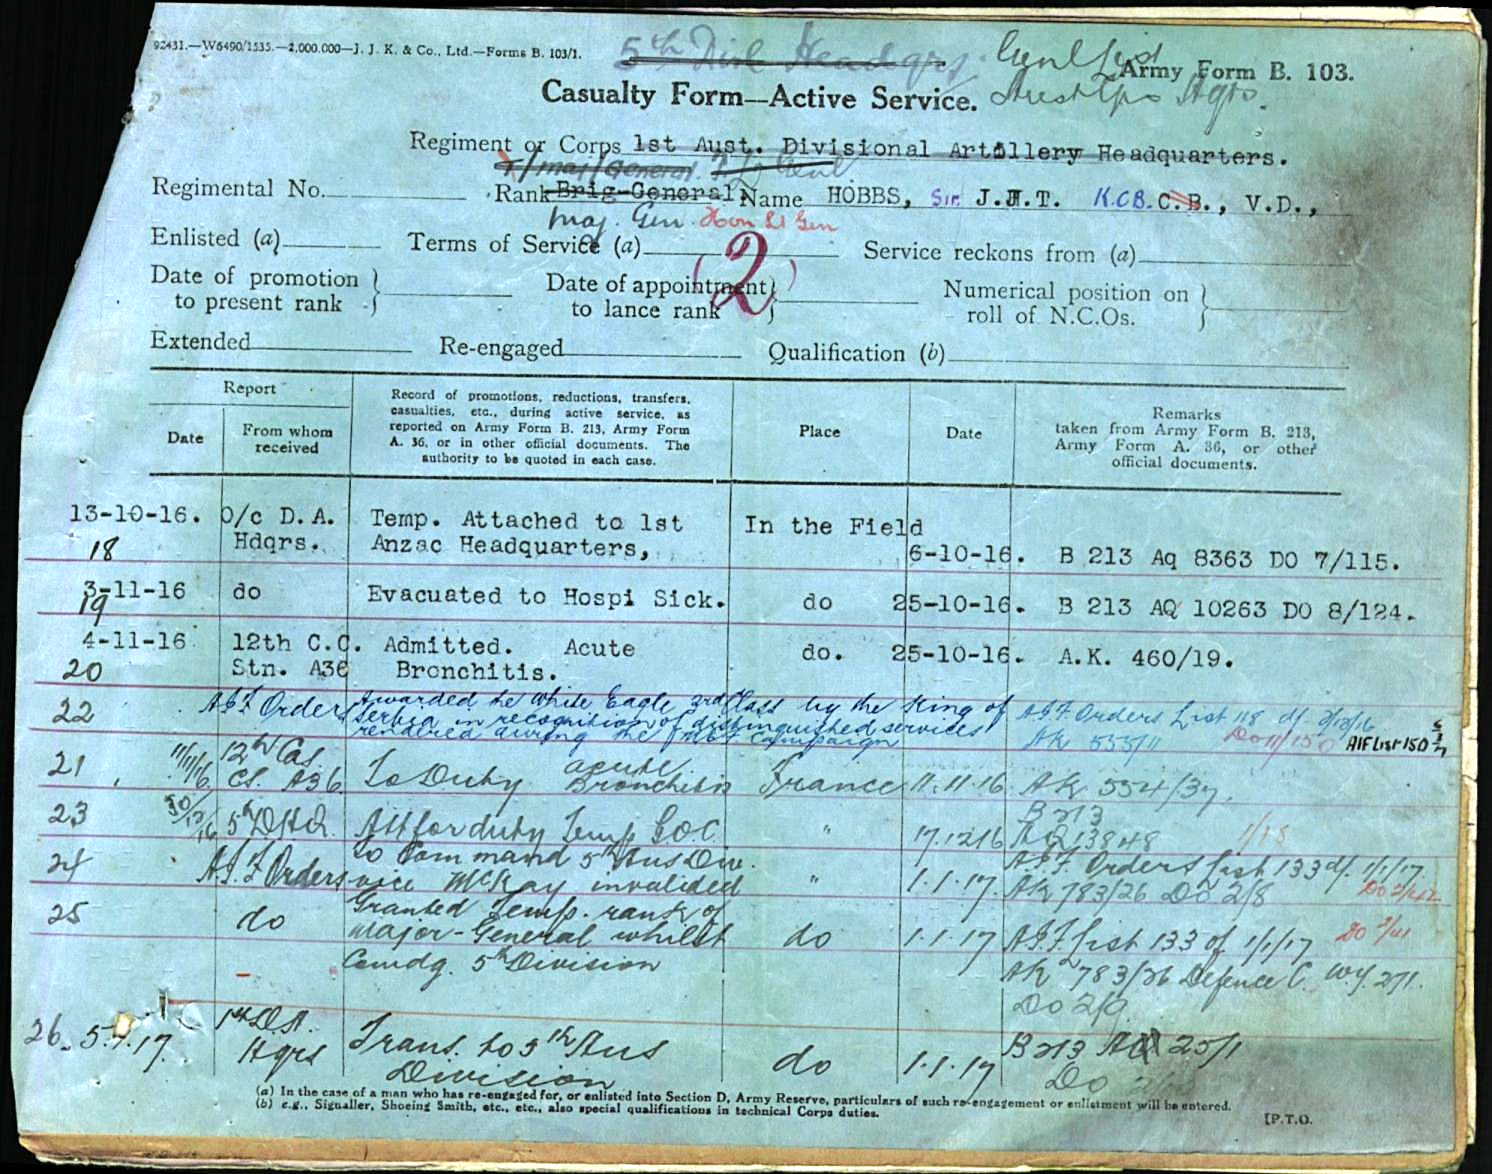 92431.—W6490/1535.—2,000,000—J. J. K. & Co., Ltd.—Forms B. 103/1.
5th Divl Headqrs. Genl List
Army Form B. 103.
Casualty Form—Active Service. Hqrs.
Regiment or Corps 1st Aust. Divisional Artillery Headquarters.
T/Maj/General
Regimental No. Rank Brig-General, Name HOBBS, Sir J.J.T. K.C.B. C.B., V.D.,
Maj. Gen. Hon Lt Gen
Enlisted (a) Terms of Service (a) Service reckons from (a)
(2)
Date of promotion to present rank
Date of appointment to lance rank
Numerical position on roll of N.C.Os.
Extended Re-engaged Qualification (b)
Report
Date
From whom received
Record of promotions, reductions, transfers,
casualties, etc., during active service, as
reported on Army Form B. 213, Army Form
A. 36, or in other official documents. The
authority to be quoted in each case.
Place
Date
Remarks
taken from Army Form B. 213,
Army Form A. 36, or other
official documents.
13-10-16. O/c D.A. Temp. Attached to 1st In the Field
18 Hdqrs. Anzac Headquarters, 6-10-16. B 213 Aq 8363 DO 7/115.
3-11-16 do Evacuated to Hospi Sick. do 25-10-16. B 213 AQ 10263 DO 8/124.
19
4-11-16 12th C.C. Admitted. Acute do. 25-10-16. A.K. 460/19.
20 Stn. A36 Bronchitis.
22 A.I.F Orders Awarded the White Eagle 3rd Class by the King of A.I.F Orders List 118
Serbia in recognition of distinguished services AK 555/11 DO 11/150 AIF List 150
rendered during the campaign
21 11/11/16 12th Cas.
Cl. A36 To Duty acute Bronchitis France 11.11.16 AK 554/37.
23 5th DHQ. for duty Temp G.O.C. " 17.12.16 B213 AQ 13848
to Command 5th Aus Div. A.I.F Orders List 133 df. 1/1/17.
24 A.I.F Orders vice McKay invalided " 1.1.17 AK 783/26 DO 2/8
25 do Granted Temp. rank of
Major-General whilst do 1.1.17 A.I.F List 133 of 1/1/17
Comdg. 5th Division AK 783/26 Defence C. 271.
DO 2/9
26 1st D.A.
Hqrs Trans. to 5th Aus
Division do 1.1.17 B213 25/1
Do
(a) In the case of a man who has re-engaged for, or enlisted into Section D, Army Reserve, particulars of such re-engagement or enlistment will be entered.
(b) e.g., Signaller, Shoeing Smith, etc., etc., also special qualifications in technical Corps duties.
[P.T.O.